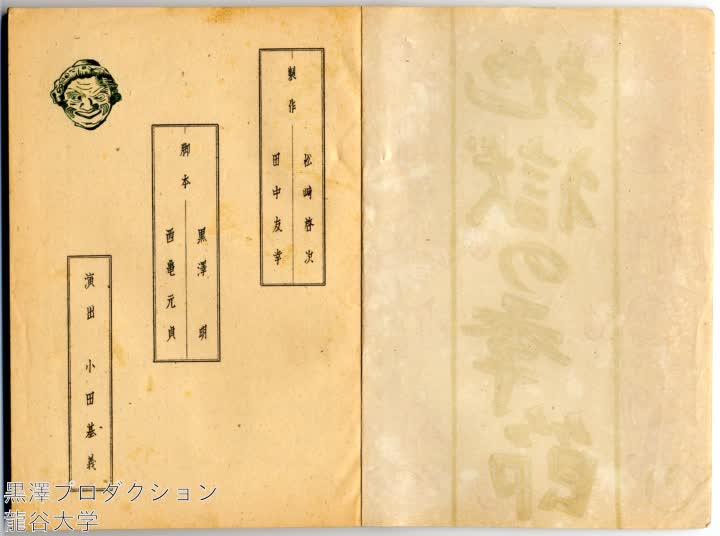 製作
松崎啓次
田中友幸
脚本
黒澤明
西亀元貞
演出 小田基義
黒澤プロダクション
龍谷大学